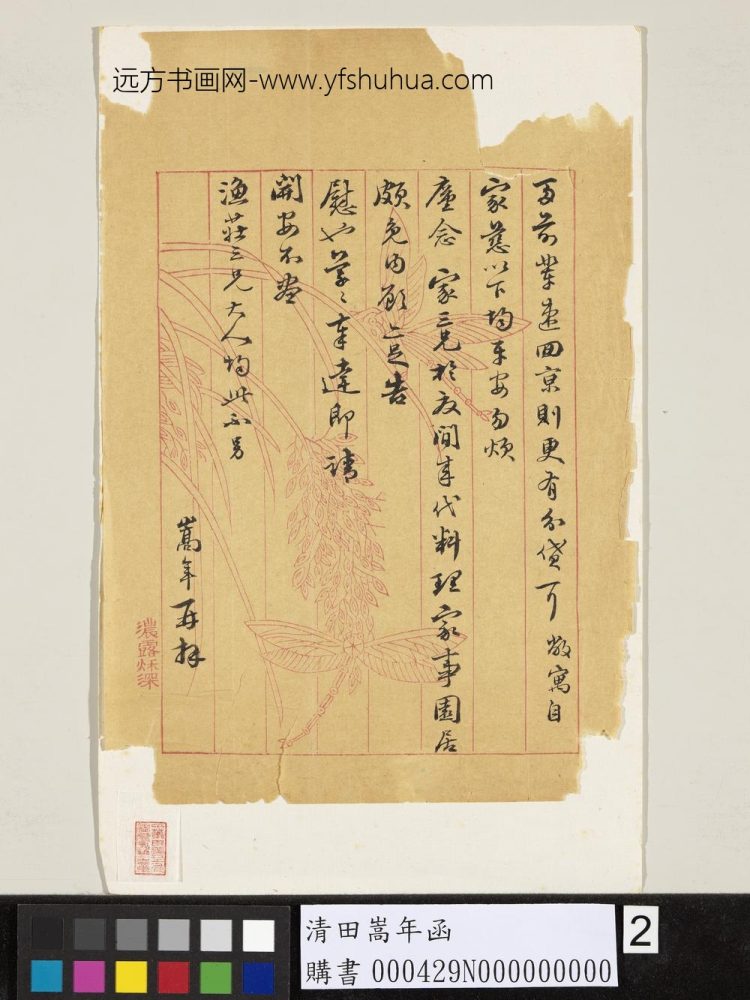 远方书画网-www.yfshuhua.com
前業速回京則更有分貸可 敝寓自
家慈以下均平安勿煩
廑念 家三兄於夜間來代料理家事園居
頗免內顧 足告
慰也 草草奉達即請
開安不盡
漁莊三兄大人均此不另
嵩年再拜
濃露秌深
清田嵩年函
購書 000429N000000000
2